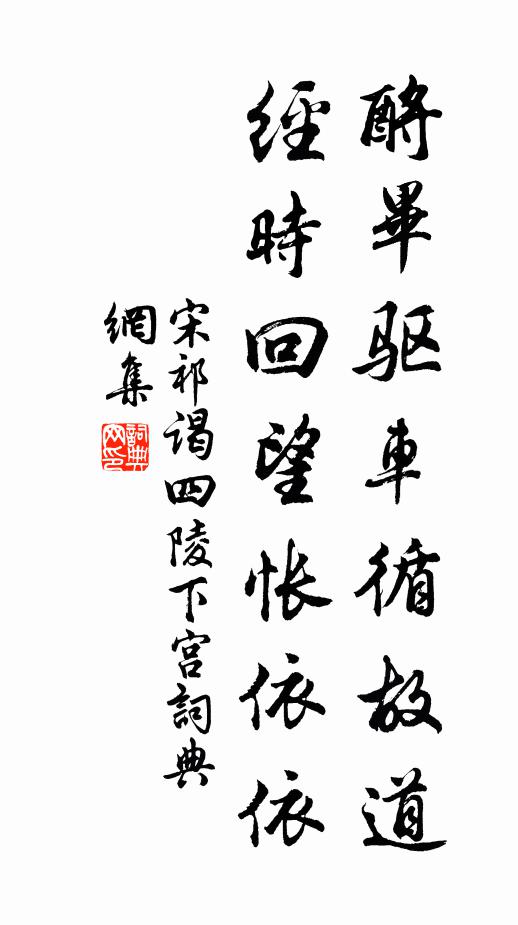 酹畢驱車循故道
經時回望悵依依
宋祁谒四陵下宫詞典
網集
詞典
网印